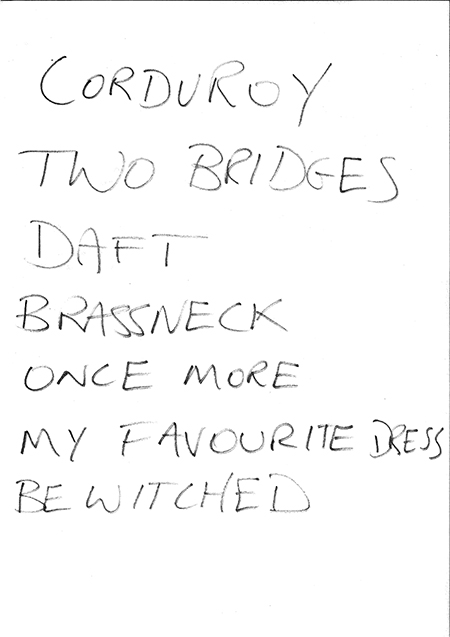 CORDUROY
TWO BRIDGES
DAFT
BRASSNECK
ONCE MORE
MY FAVOURITE DRESS
BEWITCHED